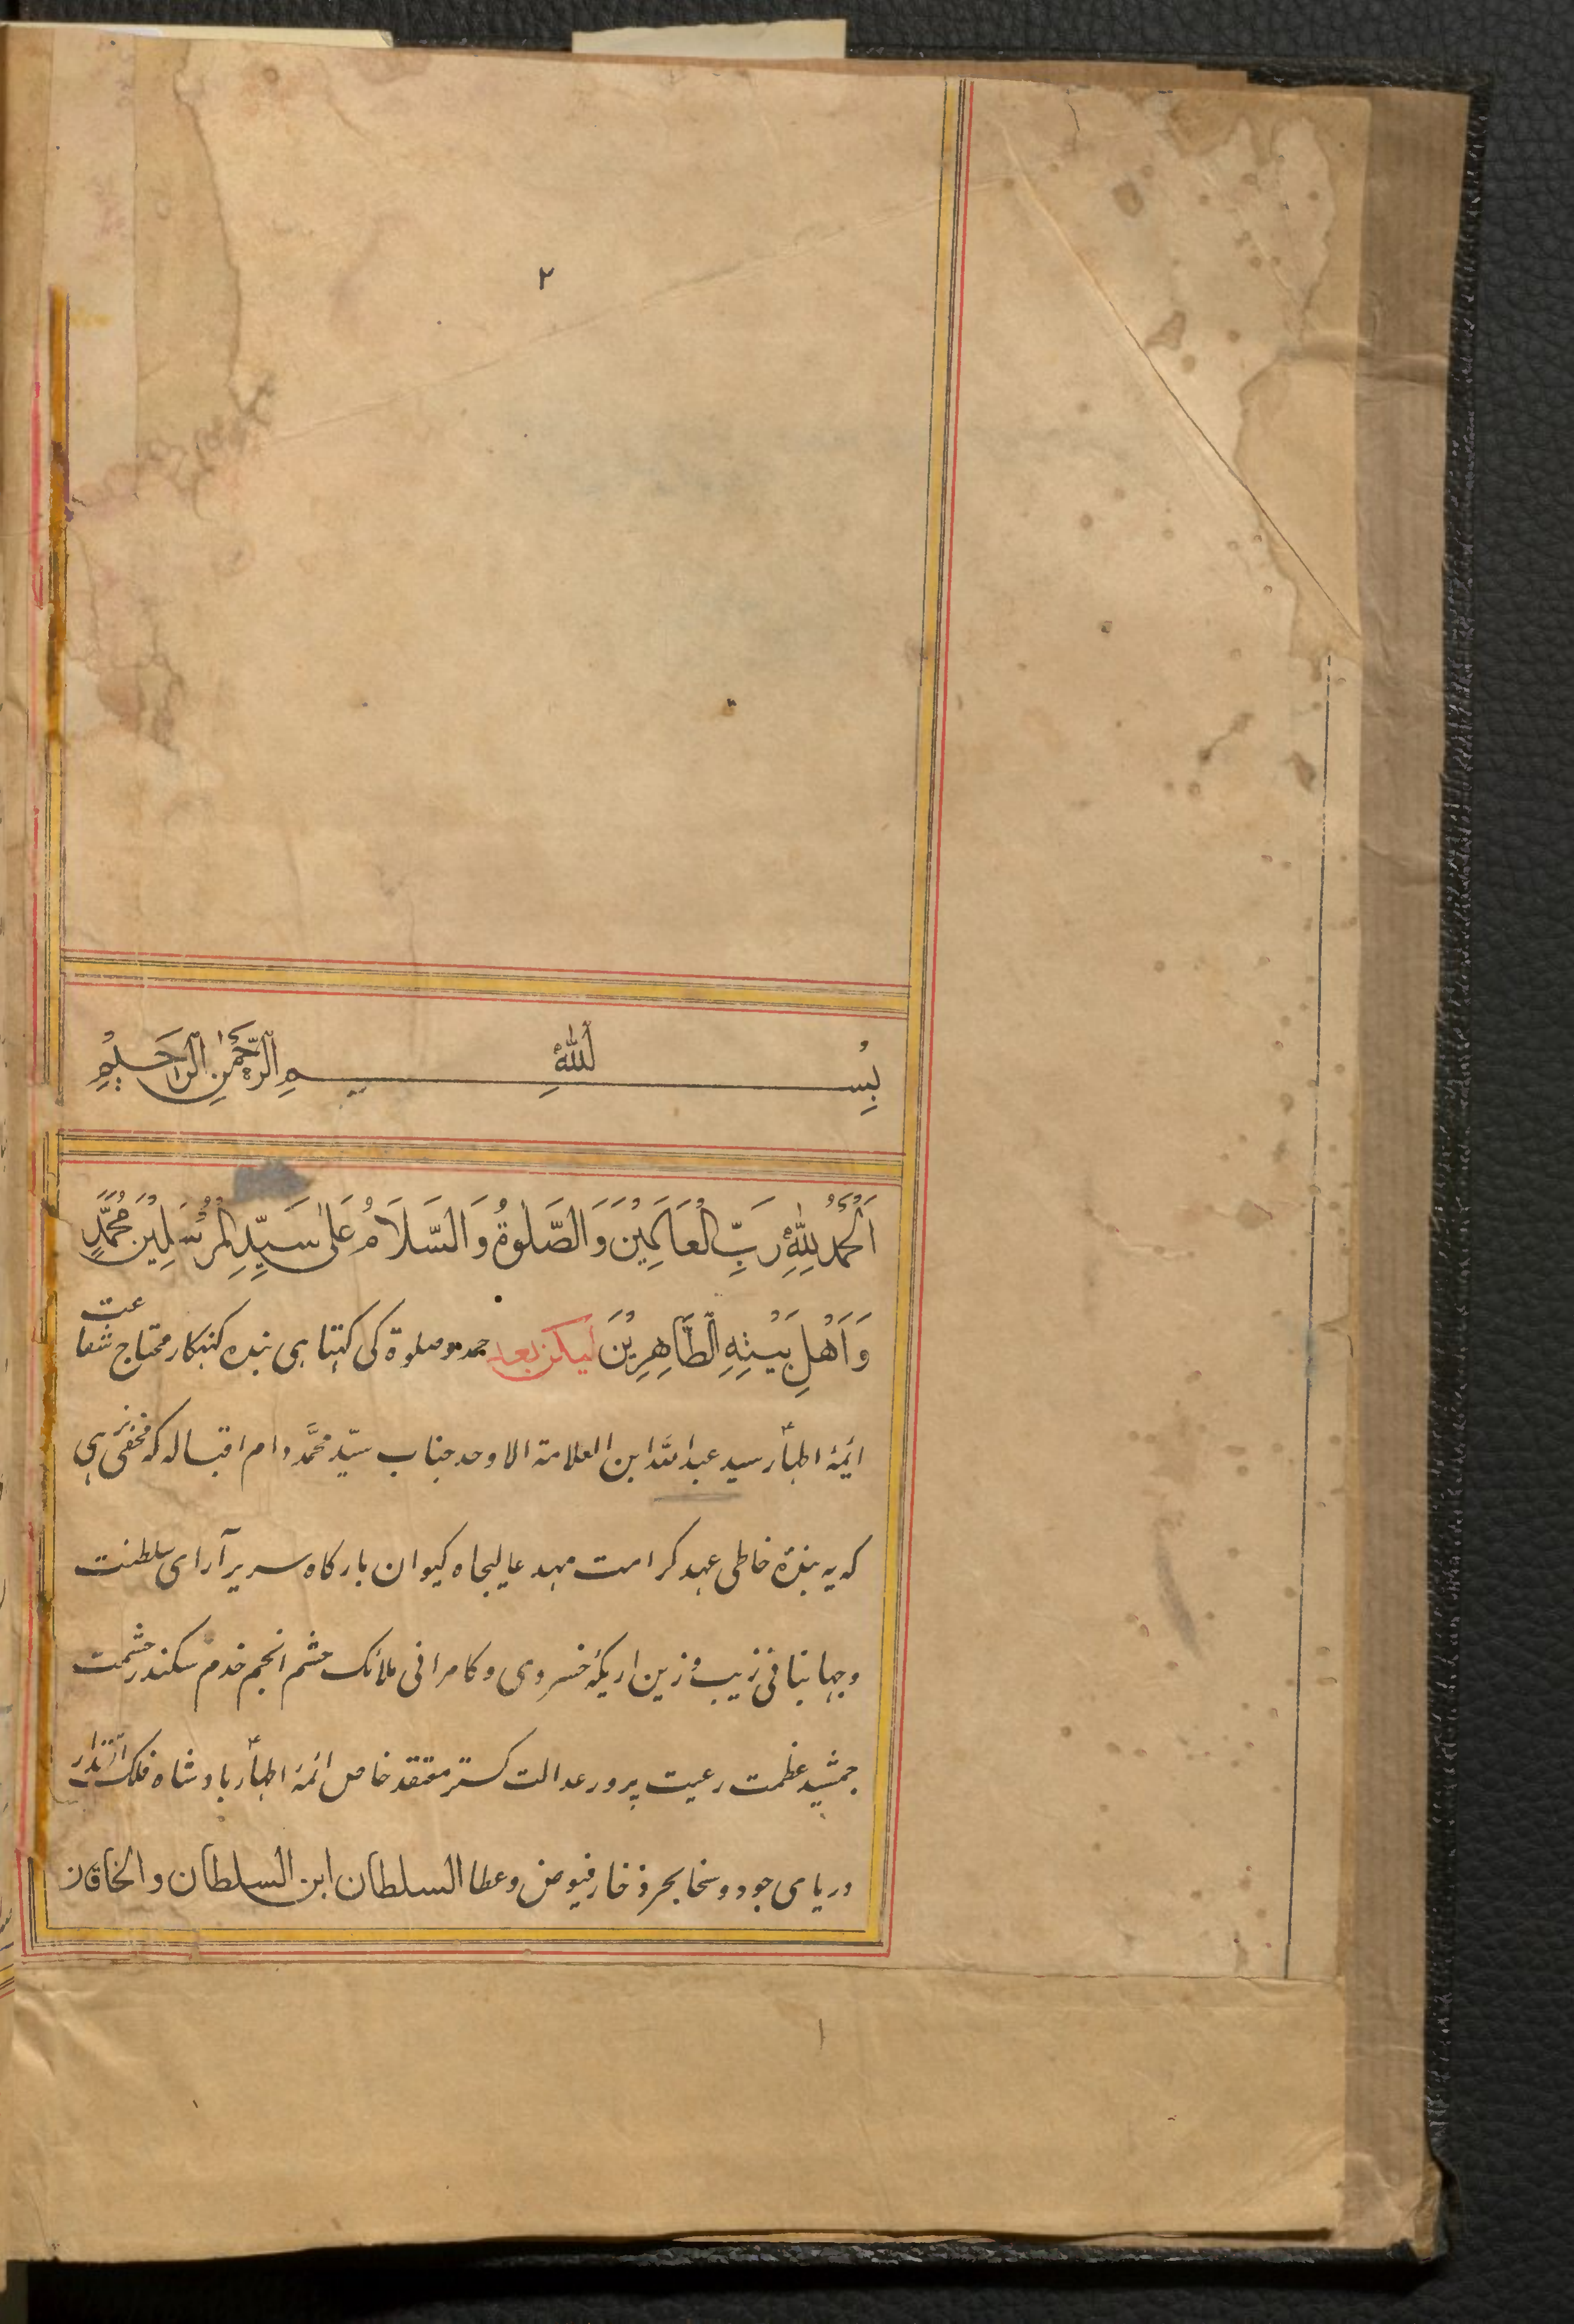 ۲
بِسْمِ اللّٰهِ الرَّحْمٰنِ الرَّحِيْمِ
اَلْحَمْدُ لِلّٰهِ رَبِّ الْعَالَمِيْنَ وَالصَّلٰوةُ وَالسَّلَامُ عَلٰى سَيِّدِ الْمُرْسَلِيْنَ مُحَمَّدٍ
وَاَهْلِ بَيْتِهِ الطَّاهِرِيْنَ لیکن بعد حمد و صلوة کی کہتا ہی بندہ کنہکار محتاج شفاعت
ائمۂ اطہار سید عبد اللہ ابن العلامة الاوحد جناب سیّد محمَّد دام اقبالہ کہ مخفی نہ رہی
کہ یہ بندۂ خاطی عہد کرامت مہد عالیجاہ کیوان بارکاہ سریر آرای سلطنت
وجہانبانی زیب و زین اریکۂ خسروی و کامرانی ملائک حشم انجم خدم سکندر حشمت
جمشید عظمت رعیت پرور عدالت کستر معتقد خاص ائمۂ اطہار بادشاہ فلک اقتدار
دریای جود و سخا بحر ذخار فیوض و عطا السلطان ابن السلطان والخاقان
۱